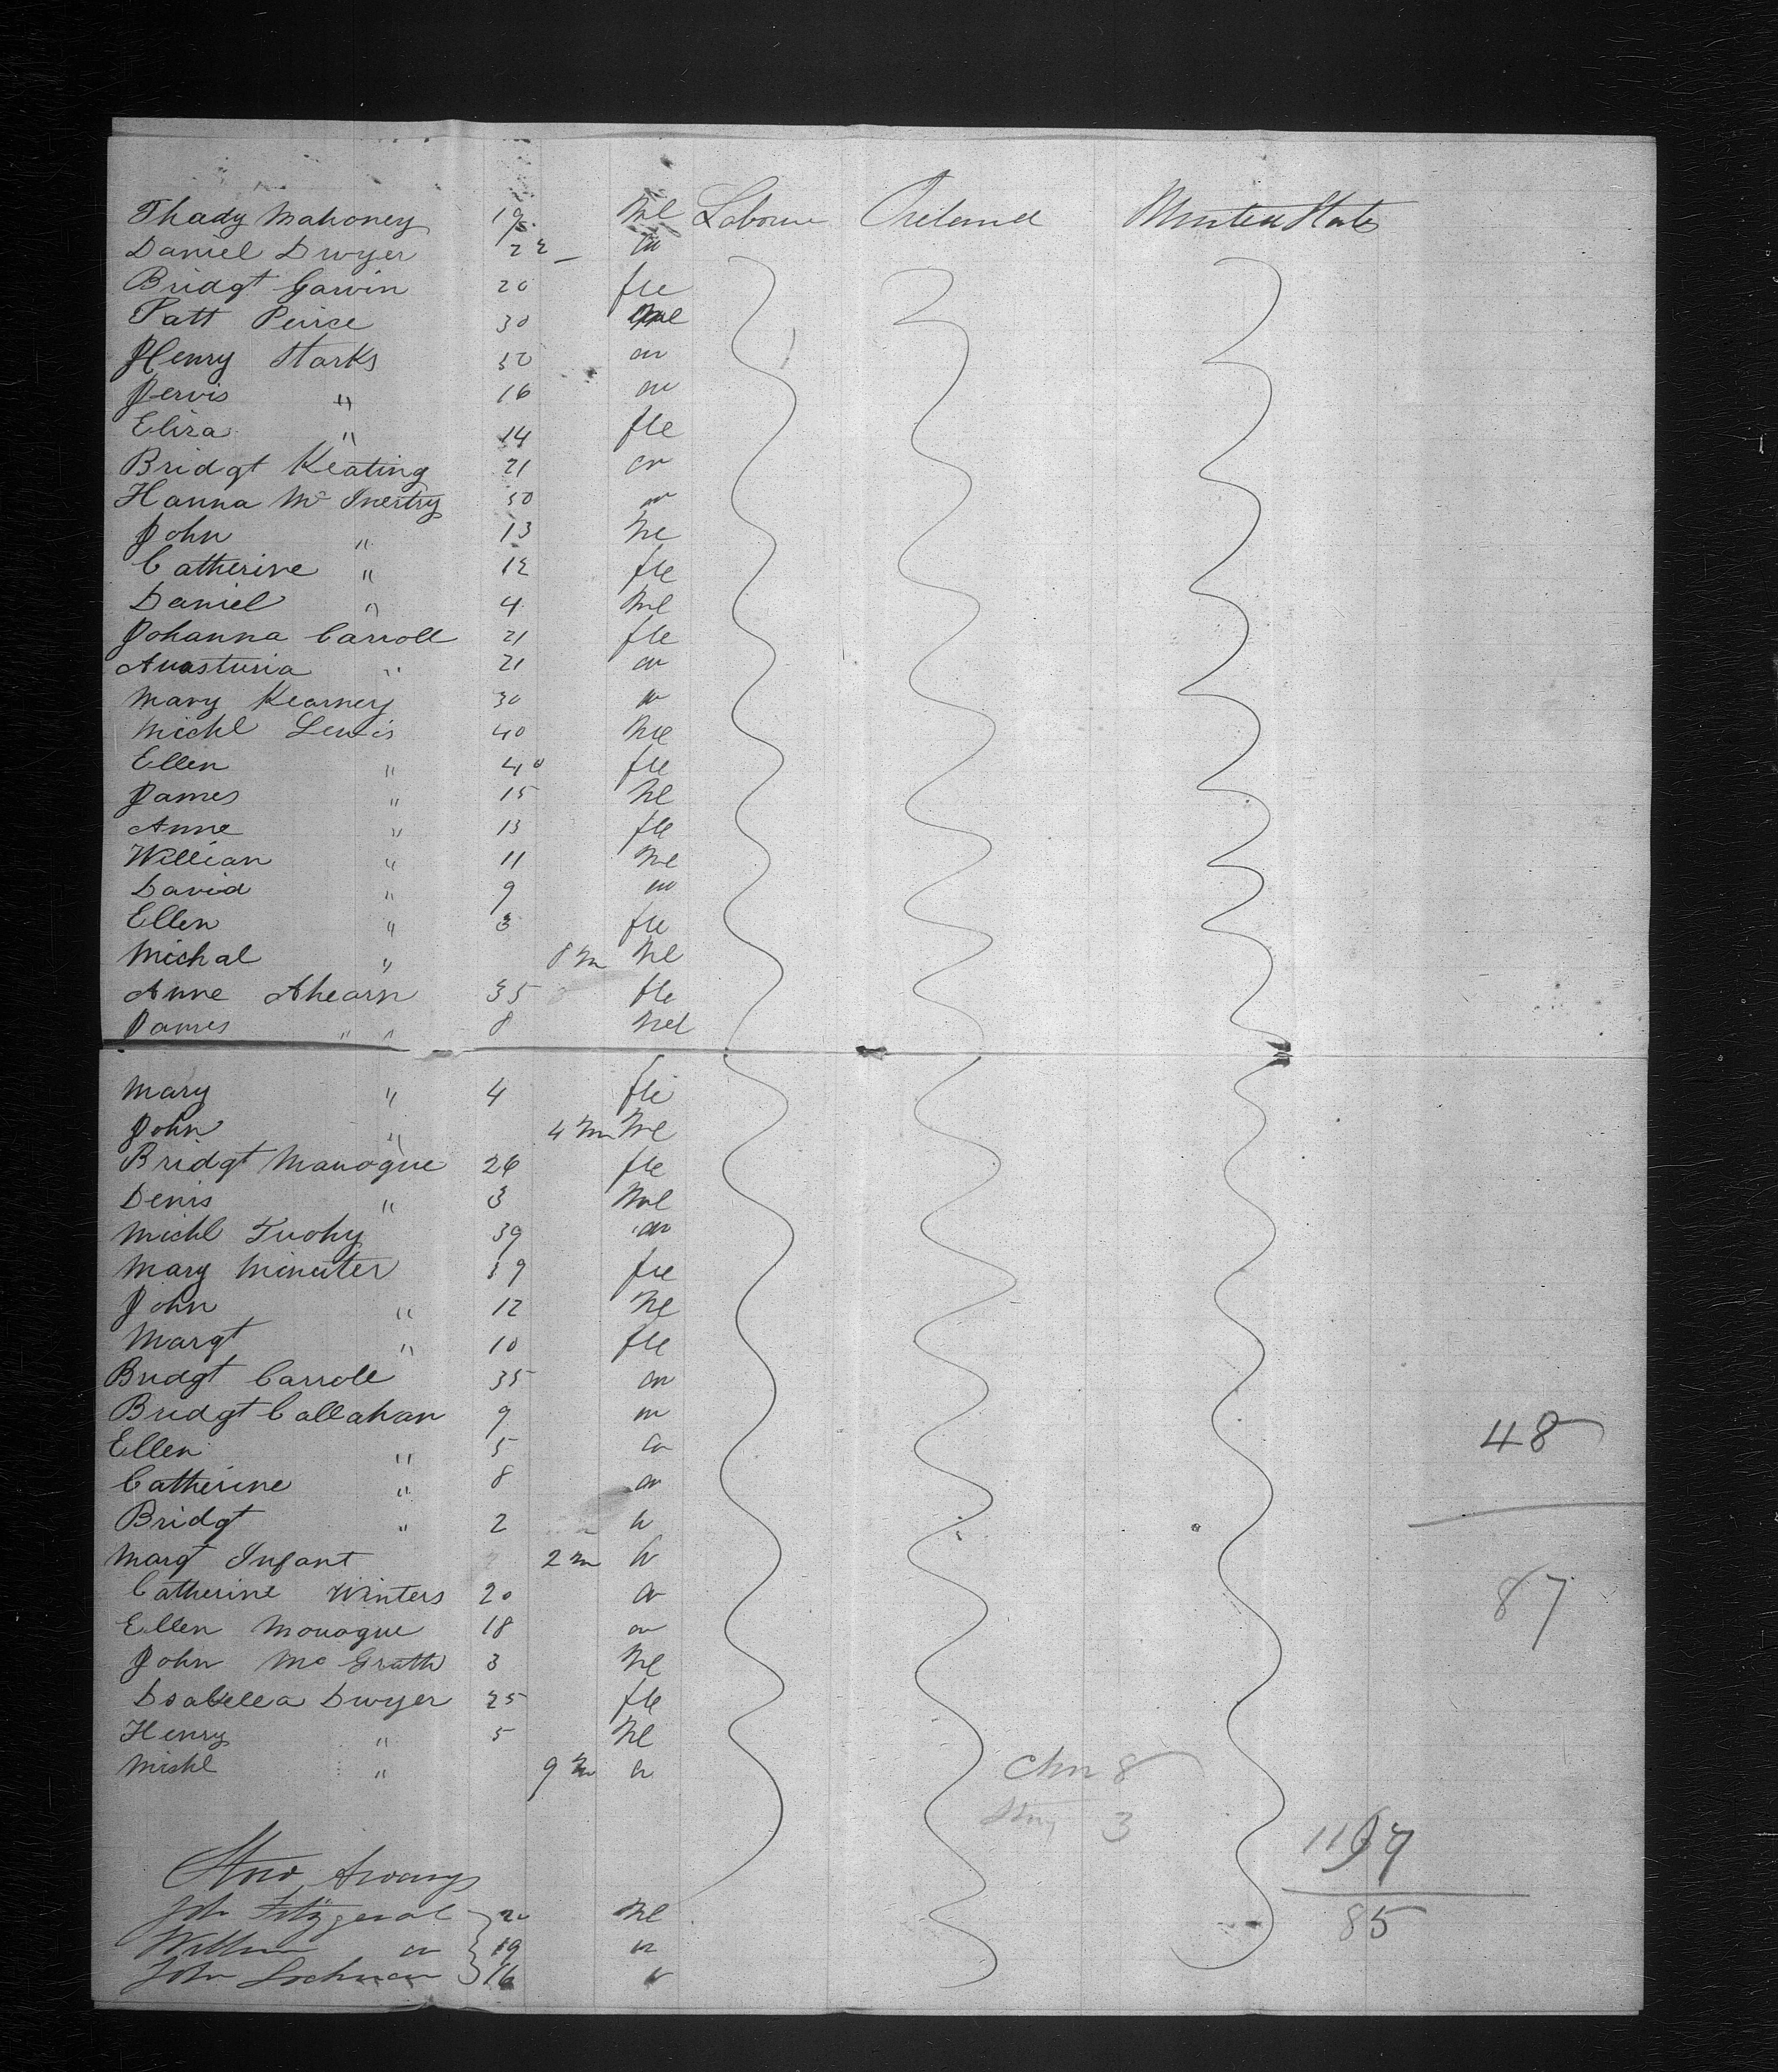 Thady Mahoney 19 Ml Labourer Ireland United States
Daniel Dwyer 22 "
Bridgt Garvin 20 fle
Patt Peirce 30 Mle
Henry Starks 50 "
Jervis " 16 "
Eliza " 14 fle
Bridgt Keating 21 "
Hanna Mc Inertry 50 "
John " 13 Me
Catherine " 12 fle
Daniel " 4 Ml
Johanna Carroll 21 fle
Anasturia " 21 "
Mary Kearney 30 "
Michl Lewis 40 Mle
Ellen " 40 fle
James " 15 Ml
Anne " 13 fle
William " 11 Ml
David " 9 "
Ellen " 3 fle
Michal " 8 m Ml
Anne Ahearn 35 fle
James " " 8 Ml
Mary " 4 fle
John " 4 m Ml
Bridgt Manogue 26 fle
Denis " 3 Ml
Michl Tuohy 39 "
Mary Minuter 39 fle
John " 12 Ml
Margt " 10 fle
Bridgt Carroll 35 "
Bridgt Callahan 9 "
Ellen " 5 "
48
Catherine " 8 "
Bridgt " 2 "
Margt Infant 2 m "
87
Catherine Winters 20 "
Ellen Monogue 18 "
John Mc Grath 3 Ml
Isabella Dwyer 25 fle
Henry " 5 Ml
Michl " 9 m "
Chn 8
3
Stow Aways
John Fitzgerald 20 Ml
85
William " 19 "
John 16 "